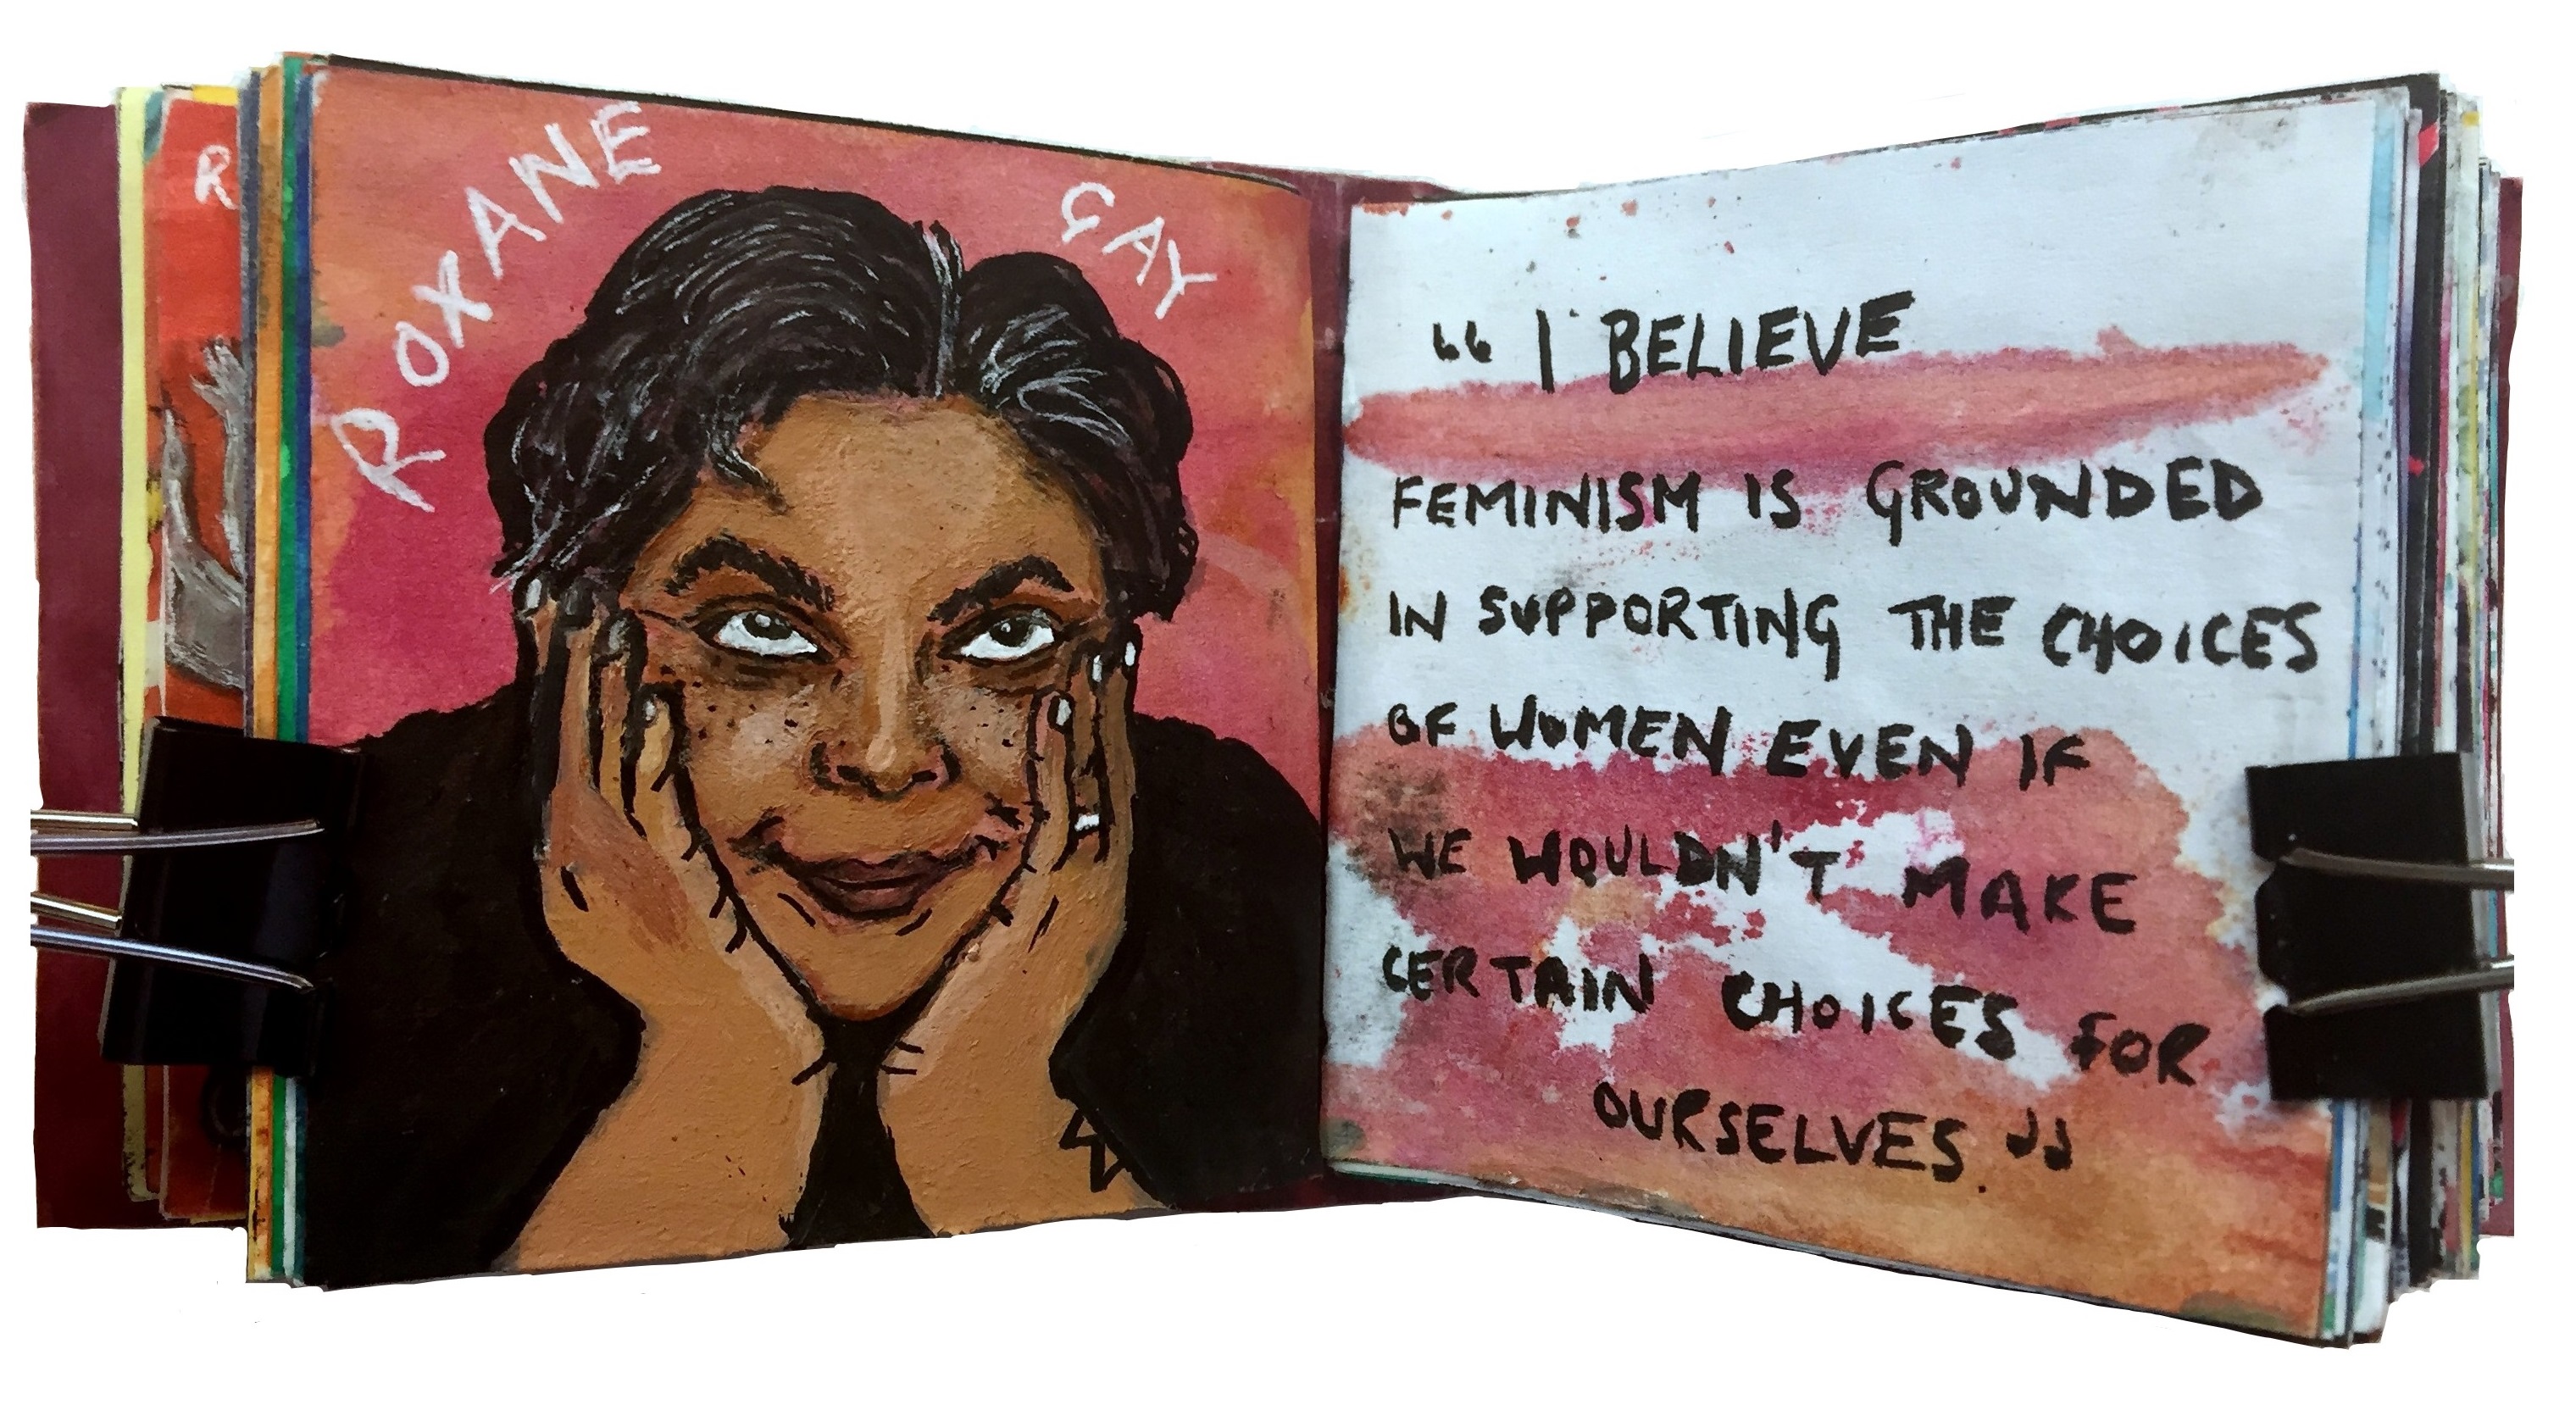 R
ROXANE GAY
“ I BELIEVE
FEMINISM IS GROUNDED
IN SUPPORTING THE CHOICES
OF WOMEN EVEN IF
WE WOULDN'T MAKE
CERTAIN CHOICES FOR
OURSELVES. ”